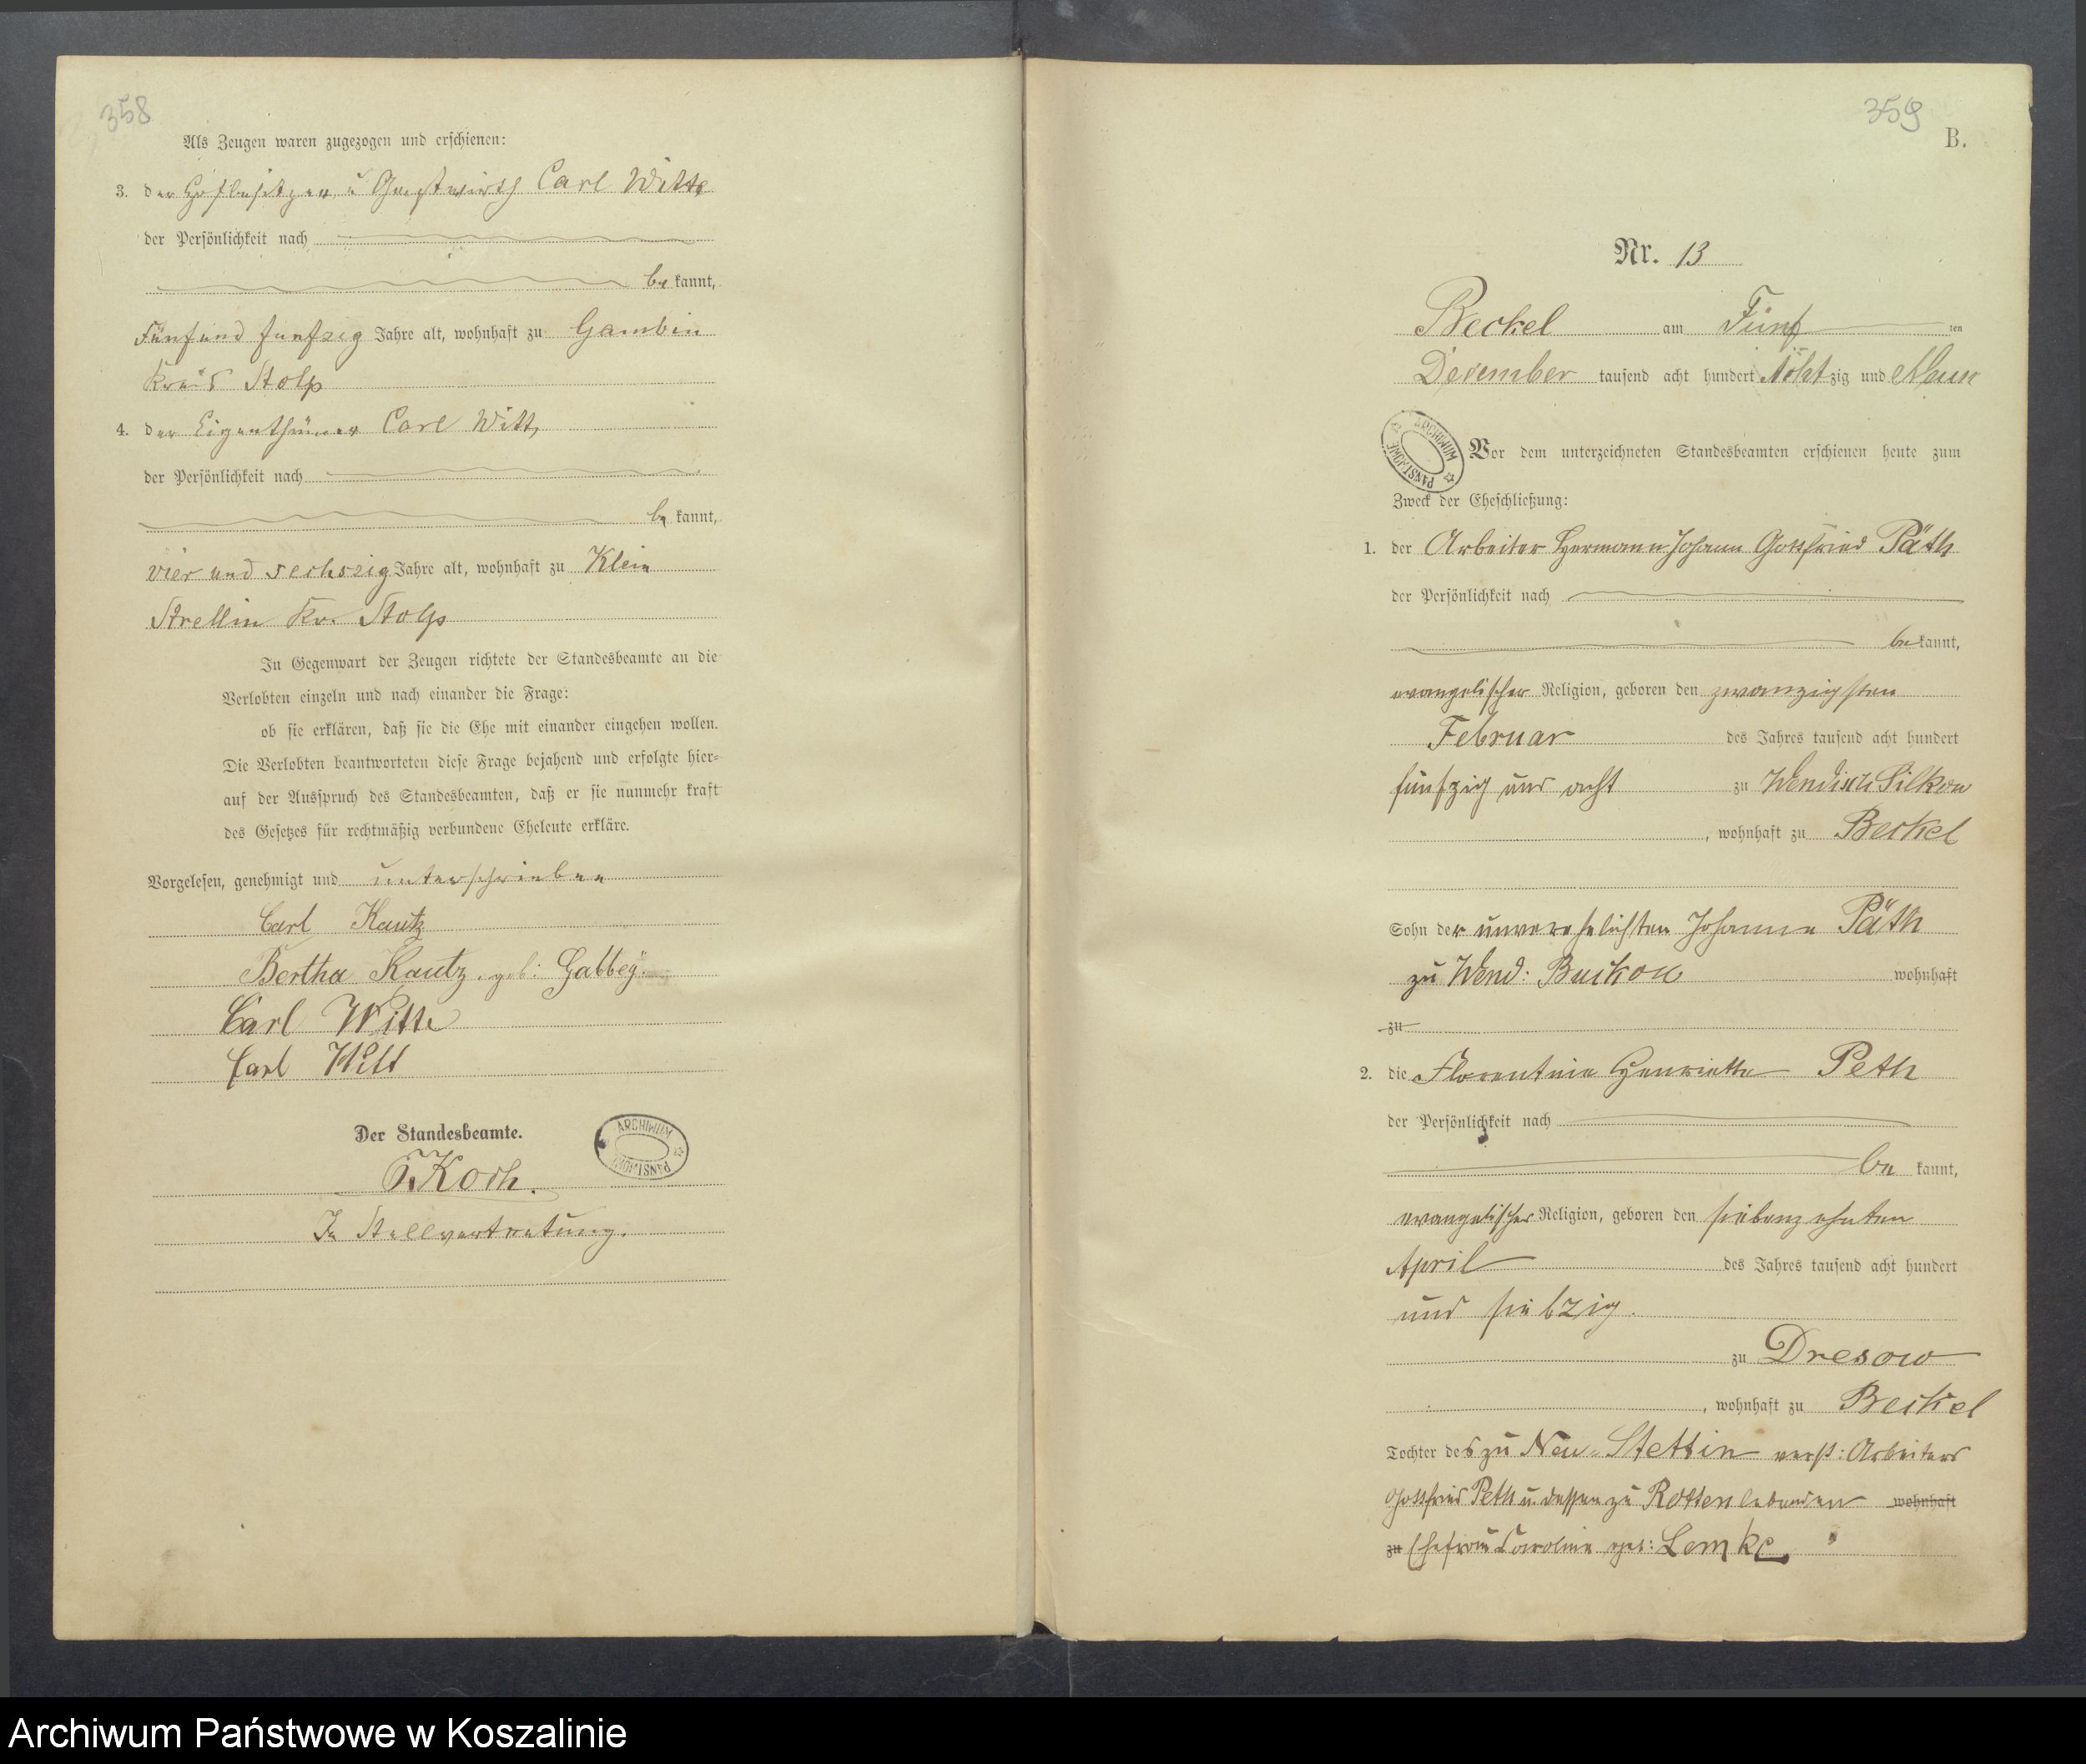 358
Als Zeugen waren zugezogen und erschienen:
3. der Hofbesitzer u Gastwirth Carl Witte
der Persönlichkeit nach
be kannt,
Fünfund funfzig Jahre alt, wohnhaft zu Gambin
Kreis Stolp
4. der Eigenthümer Carl Witt,
der Persönlichkeit nach
be kannt,
vier und sechszig Jahre alt, wohnhaft zu Klein
Strellin Kr. Stolp
In Gegenwart der Zeugen richtete der Standesbeamte an die
Verlobten einzeln und nach einander die Frage:
ob sie erklären, daß sie die Ehe mit einander eingehen wollen.
Die Verlobten beantworteten diese Frage bejahend und erfolgte hier-
auf der Ausspruch des Standesbeamten, daß er sie nunmehr kraft
des Gesetzes für rechtmäßig verbundene Eheleute erkläre.
Vorgelesen, genehmigt und unterschrieben
Carl Kautz
Bertha Kautz geb: Gabbey
Carl Witte
Carl Witt
Der Standesbeamte.
Koch.
In Stellvertretung.
ARCHIWUM PAŃSTWOWE
359
B.
Nr. 13
Beckel am Fünf ten
December tausend acht hundert Achtzig und Neun
ARCHIWUM PAŃSTWOWE
Vor dem unterzeichneten Standesbeamten erschienen heute zum
Zweck der Eheschließung:
1. der Arbeiter Hermann Johann Gottfried Päth
der Persönlichkeit nach
be kannt,
evangelischer Religion, geboren den zwanzigsten
Februar des Jahres tausend acht hundert
fünfzig und acht zu Wendisch Silkow
, wohnhaft zu Beckel
Sohn der unverehelichten Johanne Päth
zu Wend: Buckow wohnhaft
zu
2. die Florentine Henriette Peth
der Persönlichkeit nach
be kannt,
evangelischer Religion, geboren den siebenzehnten
April des Jahres tausend acht hundert
und siebzig.
zu Dresow
, wohnhaft zu Beckel
Tochter des zu Neu-Stettin verst: Arbeiters
Gottfried Peth u. dessen zu Rotten lebenden wohnhaft
zu Ehefrau Caroline geb: Lemke
Archiwum Państwowe w Koszalinie